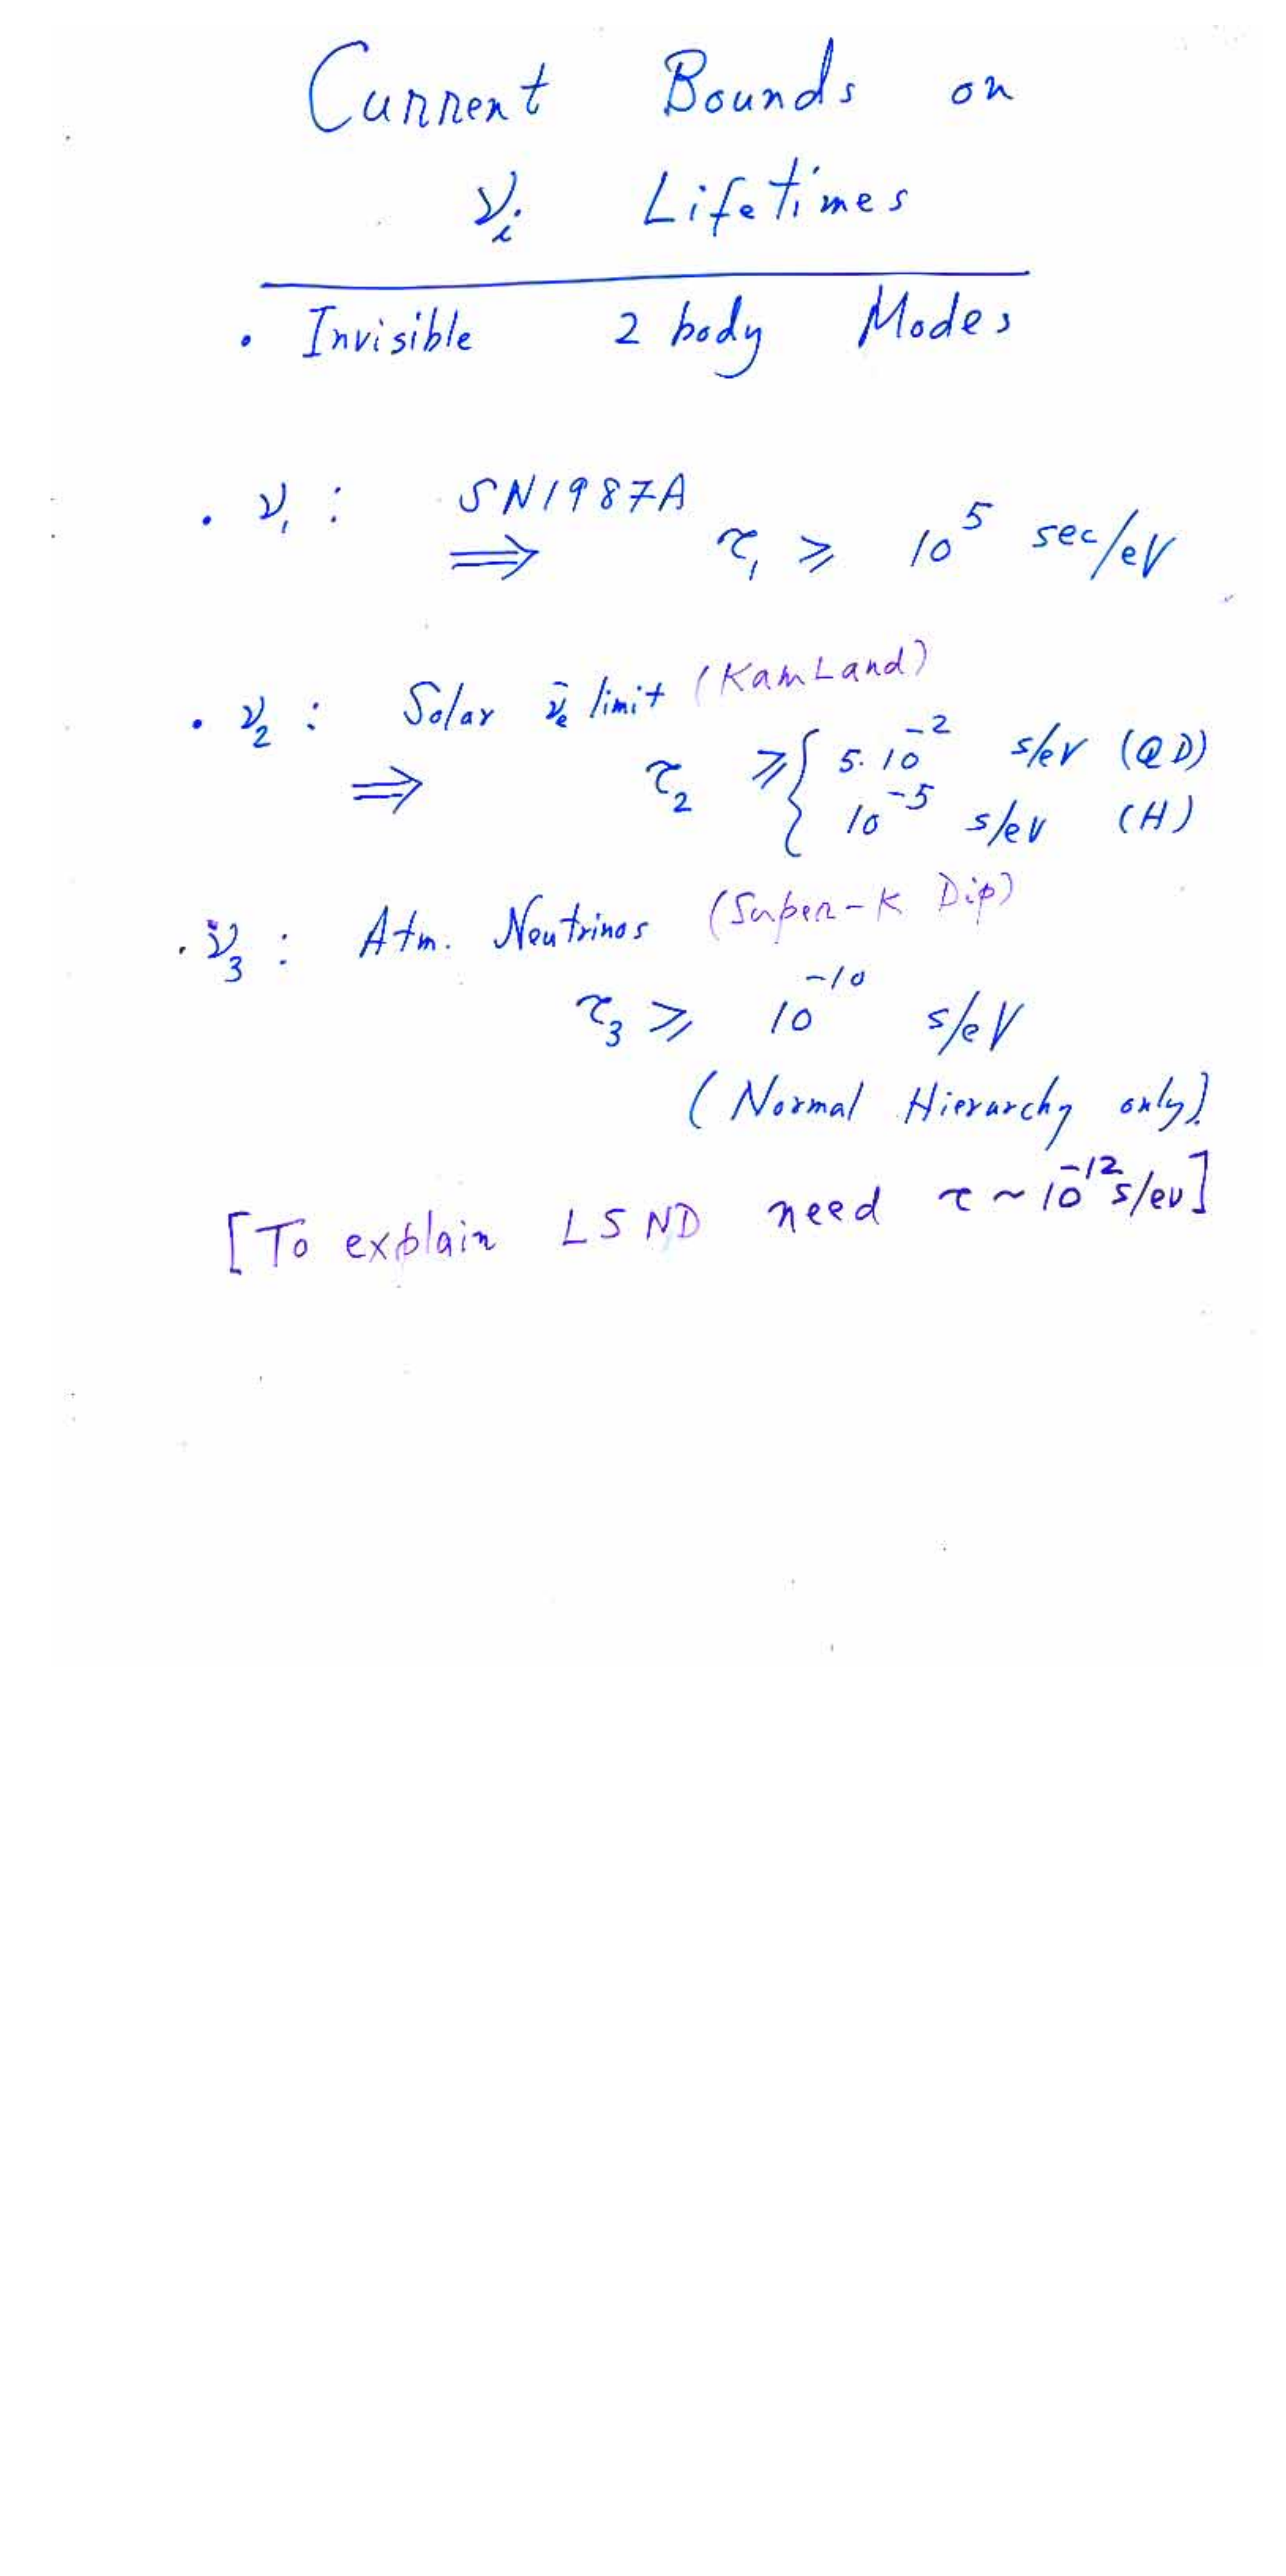 Current Bounds on
νᵢ Lifetimes
. Invisible 2 body Modes
. ν₁ : SN1987A
⟹ τ₁ ⩾ 10⁵ sec/eV
. ν₂ : Solar ν̄ₑ limit (KamLand)
⟹ τ₂ ⩾ { 5.10⁻² s/eV (QD)
10⁻⁵ s/eV (H)
. ν₃ : Atm. Neutrinos (Super-K Dip)
τ₃ ⩾ 10⁻¹⁰ s/eV
(Normal Hierarchy only)
[To explain LSND need τ ~ 10⁻¹² s/eV]